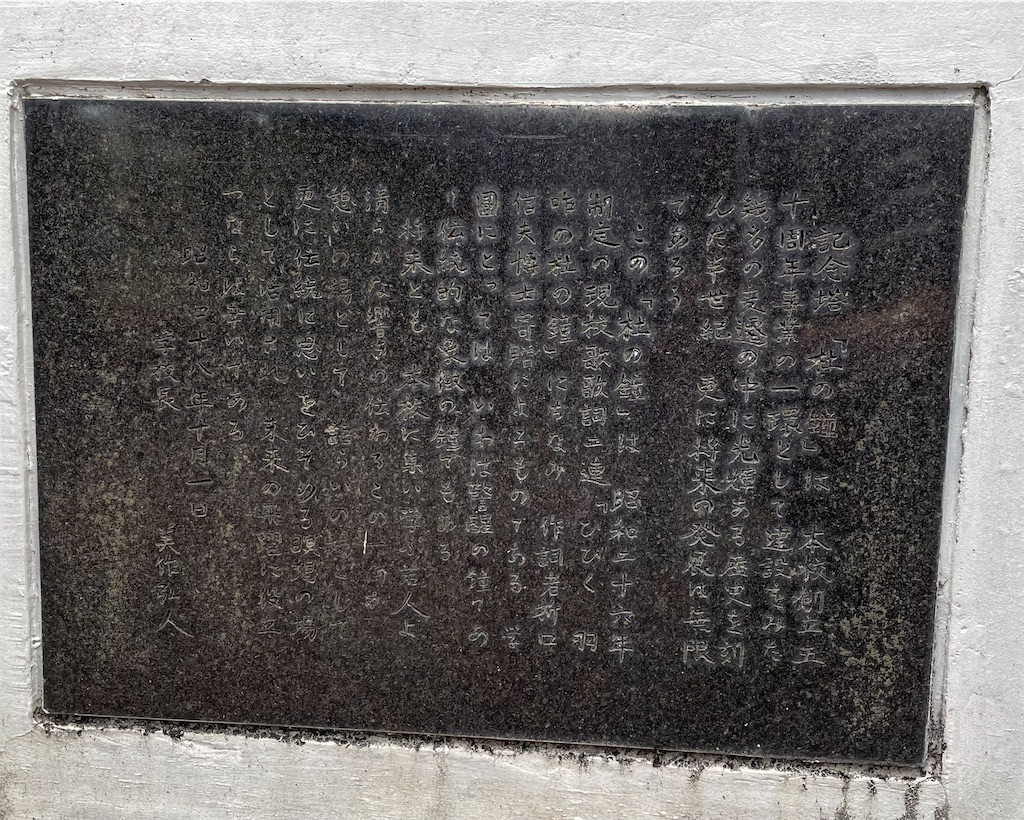 記念塔「杜の鐘」は 本校創立五
十周年事業の一環として建設をみた
幾多の変遷の中に光輝ある歴史を刻
んだ半世紀 更に将来の発展は無限
であろう
この「杜の鐘」は 昭和二十六年
制定の現校歌歌詞二連「ひびく 羽
咋の杜の鐘」にちなみ 作詞者折口
信夫博士寄贈によるものである 学
園にとっては いわば警醒の鐘であ
り伝統的な象徴の鐘でもある
将来とも 本校に集い学ぶ吉人よ
清らかな響きの伝わるとの
憩いの場として 語らいの場として
更に伝統に思いをひそめる瞑想の場
として活用され 未来の飛躍に役立
つならば幸いである
昭和四十八年十月一日
学校長 美作弘人